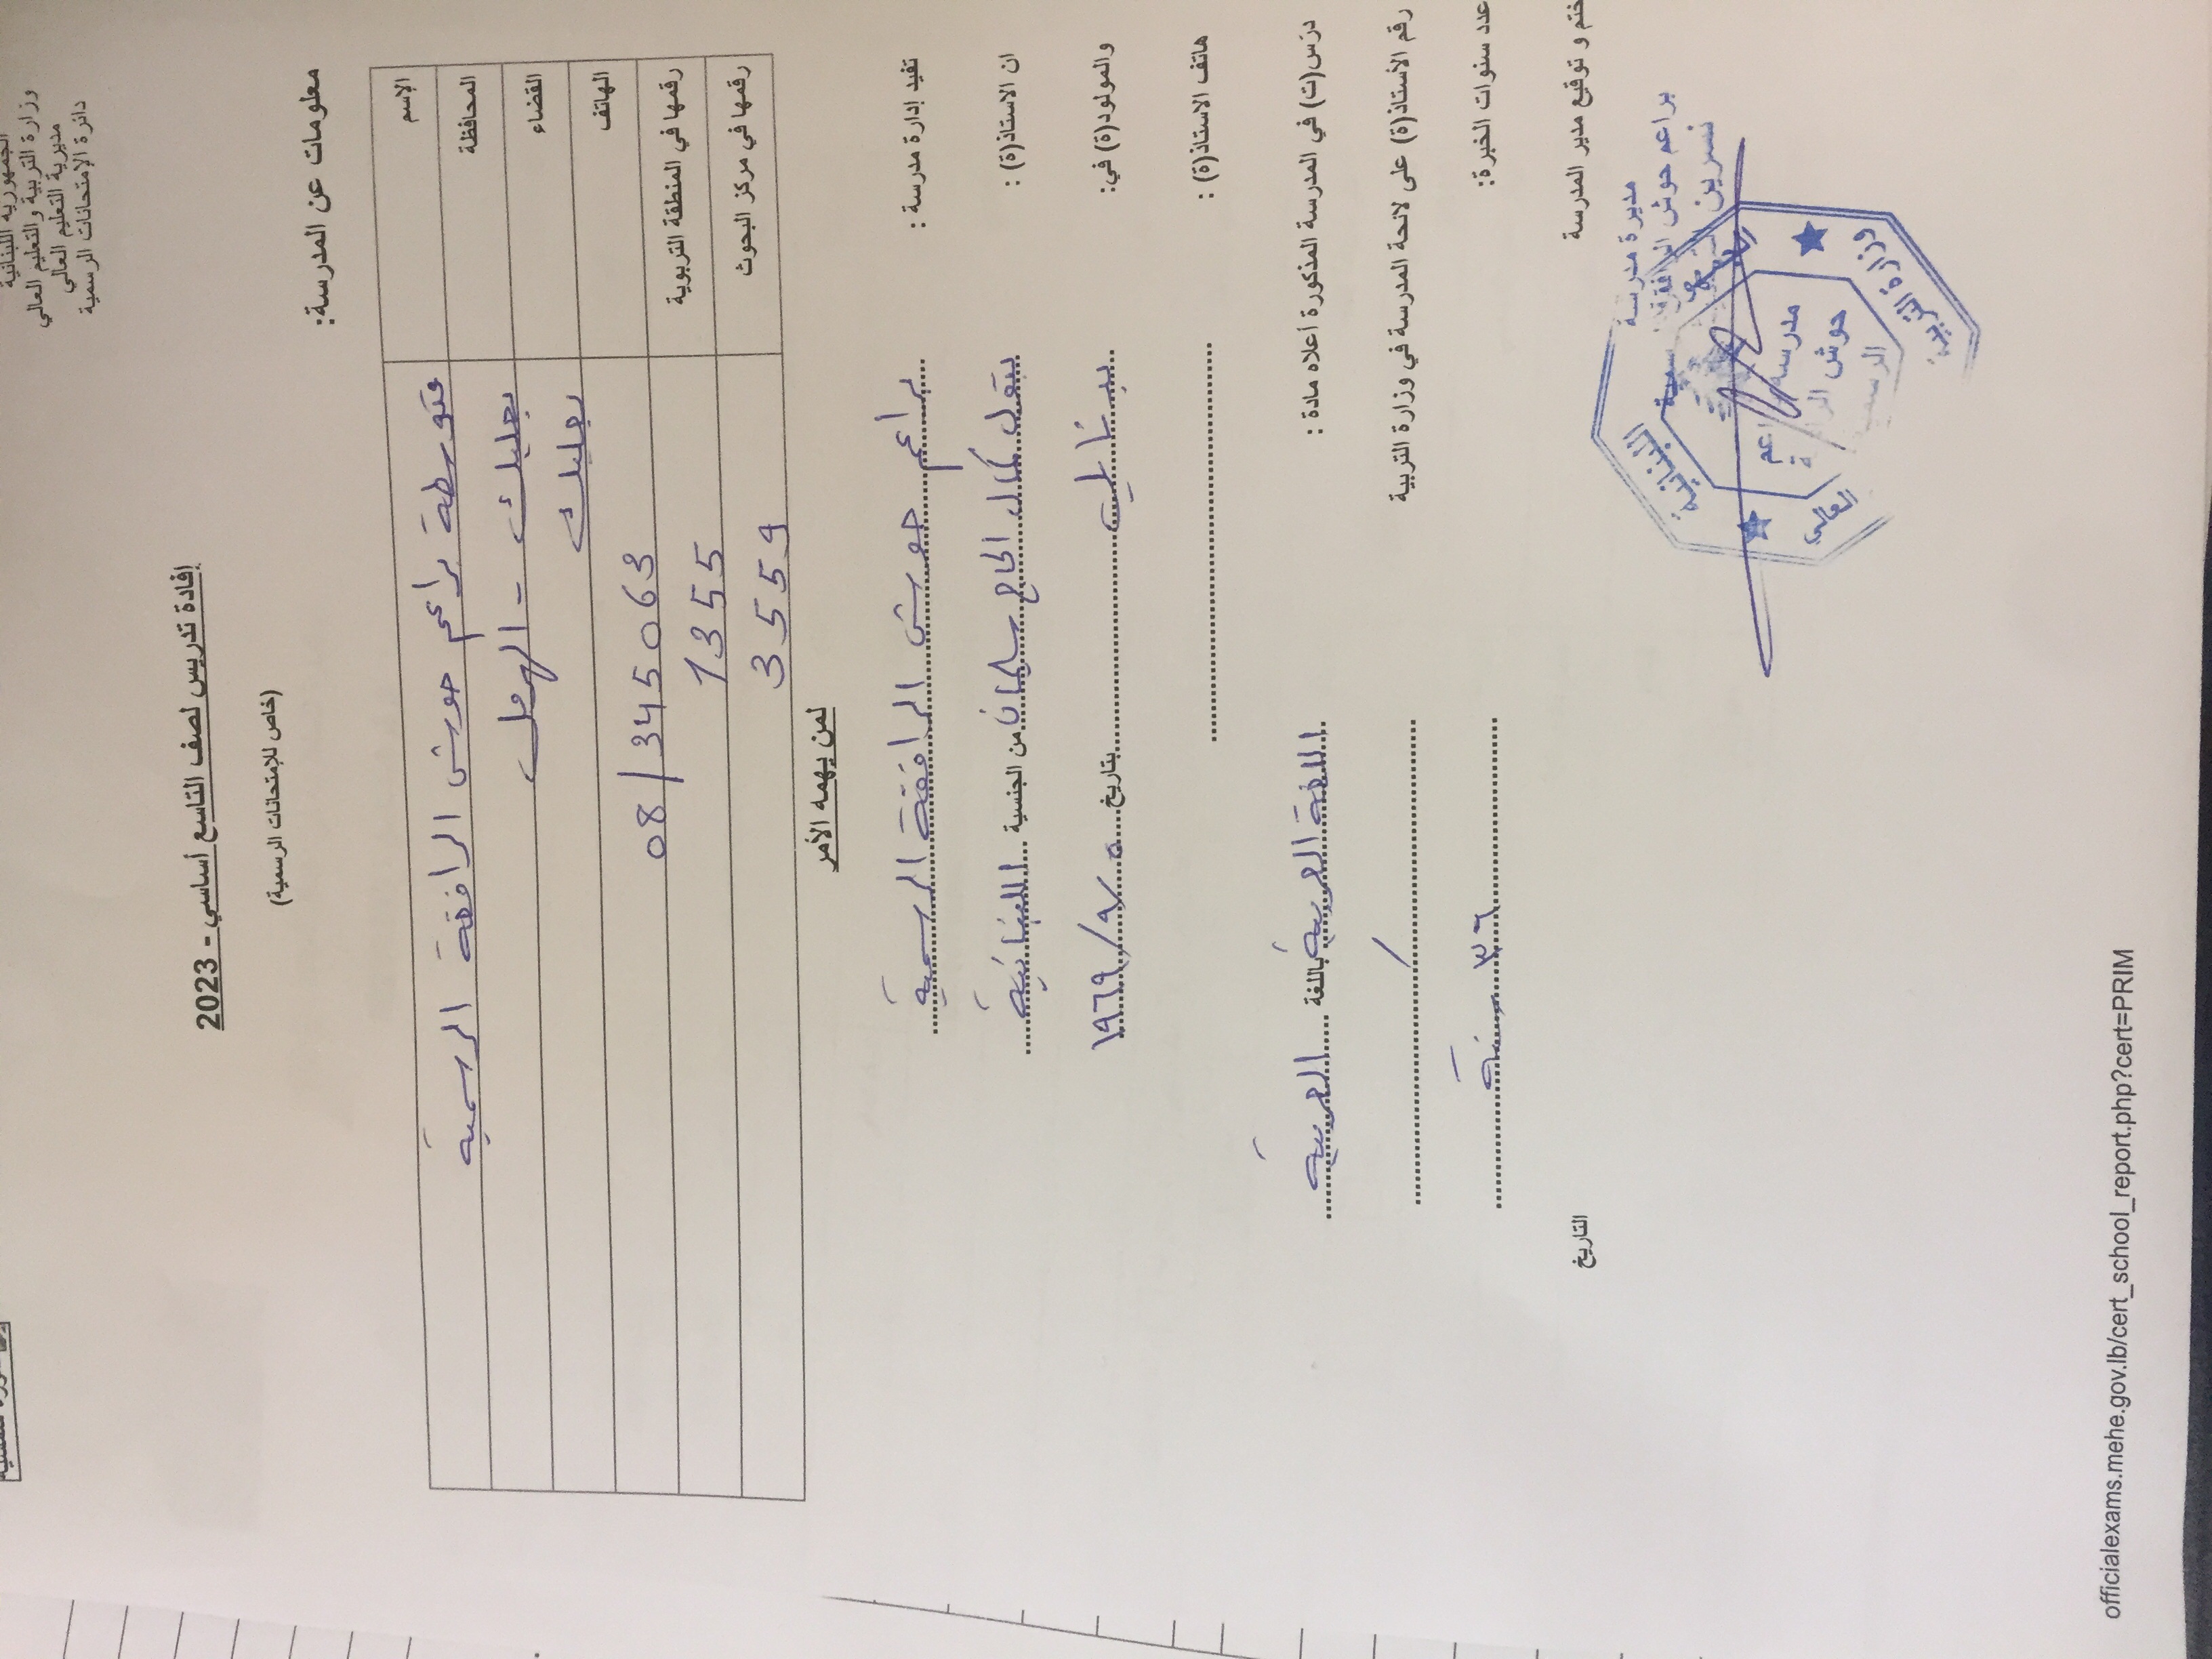 الجمهورية اللبنانية
وزارة التربية والتعليم العالي
مديرية التعليم العالي
دائرة الإمتحانات الرسمية
إفادة تدريس لصف التاسع أساسي - 2023
(خاص للإمتحانات الرسمية)
معلومات عن المدرسة:
الإسم متوسطة براعم حوش الرافقة الرسمية
المحافظة بعلبك - الهرمل
القضاء بعلبك
الهاتف 08/345063
رقمها في المنطقة التربوية 1355
رقمها في مركز البحوث 3559
لمن يهمه الأمر
تفيد إدارة مدرسة : براعم حوش الرافقة الرسمية
ان الاستاذ(ة) : بتول كمال الحاج سليمان من الجنسية اللبنانية
والمولود(ة) في: بدنايل بتاريخ ٥/٩/١٩٦٩
هاتف الاستاذ(ة) :
درّس(ت) في المدرسة المذكورة أعلاه مادة : اللغة العربية باللغة العربية
رقم الأستاذ(ة) على لائحة المدرسة في وزارة التربية /
عدد سنوات الخبرة: ٣٦ سنة
ختم و توقيع مدير المدرسة التاريخ
مديرة مدرسة
براعم حوش الرافقة
نسرين
اللبنانية
وزارة التربية
العالي
مدرسة
حوش
officialexams.mehe.gov.lb/cert_school_report.php?cert=PRIM